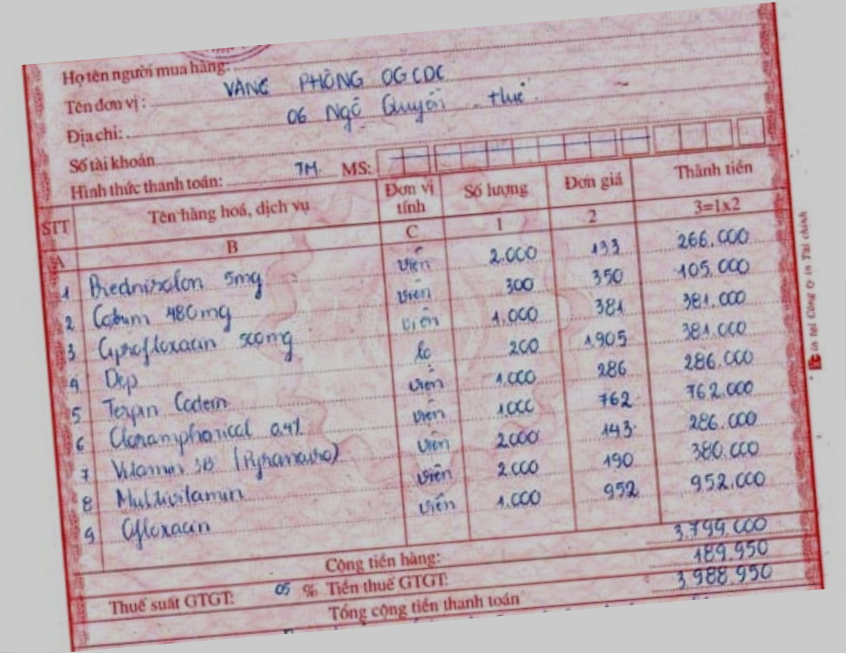 Họ tên người mua hàng:
Tên đơn vị: VĂNG PHÒNG OGCDC
Địa chỉ: 06 Ngô Quyền Huế
Số tài khoản
Hình thức thanh toán: TM MS:
STT Tên hàng hoá, dịch vụ Đơn vị tính Số lượng Đơn giá Thành tiền
A B C 1 2 3=1x2
1 Prednisolon 5mg viên 2.000 133 266.000
2 Cotrim 480mg viên 300 350 105.000
3 Ciprofloxacin 500mg viên 1.000 381 381.000
4 Dep lọ 200 1.905 381.000
5 Terpin Codein viên 1.000 286 286.000
6 Cloramphenicol 0,4% viên 1000 762 762.000
7 Vitamin 3B viên 2.000 143 286.000
8 Multivitamin viên 2.000 190 380.000
9 Ofloxacin viên 1.000 952 952.000
Cộng tiền hàng: 3.799.000
Thuế suất GTGT: 05 % Tiền thuế GTGT: 189.950
Tổng cộng tiền thanh toán 3.988.950
in tại Công ty in Tài chính